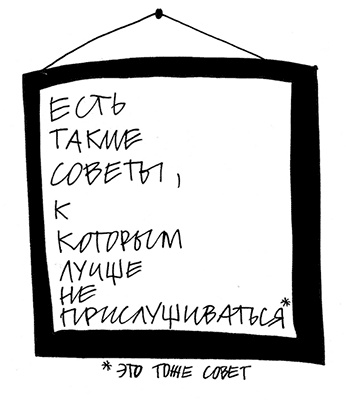 ЕСТЬ
ТАКИЕ
СОВЕТЫ,
К
КОТОРЫМ
ЛУЧШЕ
НЕ
ПРИСЛУШИВАТЬСЯ*
*ЭТО ТОЖЕ СОВЕТ